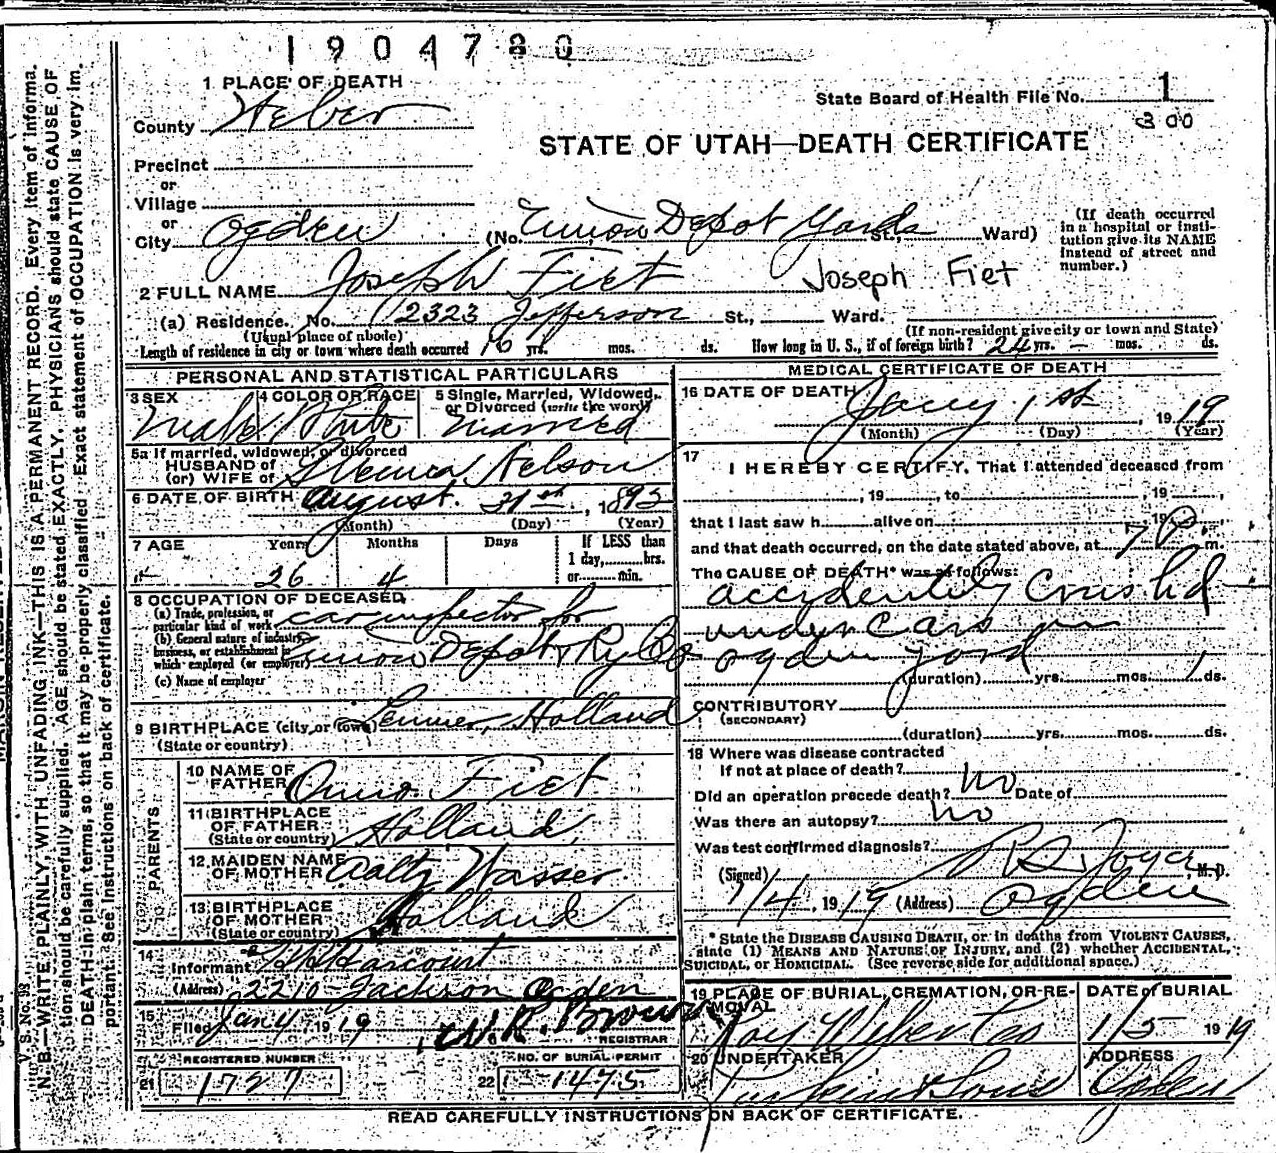 1904780
1 PLACE OF DEATH
County Weber
State Board of Health File No. 1
300
STATE OF UTAH—DEATH CERTIFICATE
Precinct
or
Village
or
City Ogden (No. Union Depot Yards St., Ward)
(If death occurred in a hospital or institution give its NAME instead of street and number.)
2 FULL NAME Joseph Fiet Joseph Fiet
(a) Residence. No. 2323 Jefferson St., Ward.
(Usual place of abode) (If non-resident give city or town and State)
Length of residence in city or town where death occurred 16 yrs. mos. ds. How long in U. S., if of foreign birth? 24 yrs. - mos. ds.
PERSONAL AND STATISTICAL PARTICULARS
3 SEX 4 COLOR OR RACE 5 Single, Married, Widowed, or Divorced (write the word)
Male White Married
5a If married, widowed, or divorced
HUSBAND of
(or) WIFE of Nelson
6 DATE OF BIRTH August 1892
(Month) (Day) (Year)
7 AGE Years Months Days If LESS than
1 day, hrs.
or min.
26 4
8 OCCUPATION OF DECEASED
(a) Trade, profession, or particular kind of work car inspector for
(b) General nature of industry, business, or establishment in which employed (or employer) Union Depot & Ry Co
(c) Name of employer
9 BIRTHPLACE (city or town) Holland
(State or country)
PARENTS
10 NAME OF FATHER Onno Fiet
11 BIRTHPLACE OF FATHER Holland
(State or country)
12 MAIDEN NAME OF MOTHER Aalty Wasser
13 BIRTHPLACE OF MOTHER Holland
(State or country)
14
Informant Harcourt
(Address) 2210 Jackson Ogden
15
Filed Jan 4, 1919 W. R. Brown
REGISTRAR
REGISTERED NUMBER NO. OF BURIAL PERMIT
21 1727 22 1475
MEDICAL CERTIFICATE OF DEATH
16 DATE OF DEATH Jany 1st, 1919
(Month) (Day) (Year)
17
I HEREBY CERTIFY, That I attended deceased from
, 19 , to , 19 ,
that I last saw h alive on , 19
and that death occurred, on the date stated above, at 7 P. m.
The CAUSE OF DEATH* was as follows:
accidentely Crushed
under Cars in
ogden yard
(duration) yrs. mos. 1 ds.
CONTRIBUTORY
(SECONDARY)
(duration) yrs. mos. ds.
18 Where was disease contracted
if not at place of death?
Did an operation precede death? no Date of
Was there an autopsy? no
Was test confirmed diagnosis?
(Signed) M. D.
1/4, 1919 (Address) Ogden
* State the DISEASE CAUSING DEATH, or, in deaths from VIOLENT CAUSES,
state (1) MEANS AND NATURE OF INJURY, and (2) whether ACCIDENTAL,
SUICIDAL, or HOMICIDAL. (See reverse side for additional space.)
19 PLACE OF BURIAL, CREMATION, OR REMOVAL DATE of BURIAL
Weber 1/5 1919
20 UNDERTAKER ADDRESS
& Sons Ogden
READ CAREFULLY INSTRUCTIONS ON BACK OF CERTIFICATE.
V. S. No. 98
N. B.—WRITE PLAINLY, WITH UNFADING INK—THIS IS A PERMANENT RECORD. Every item of informa-
tion should be carefully supplied. AGE should be stated EXACTLY. PHYSICIANS should state CAUSE OF
DEATH in plain terms, so that it may be properly classified. Exact statement of OCCUPATION is very im-
portant. See instructions on back of certificate.